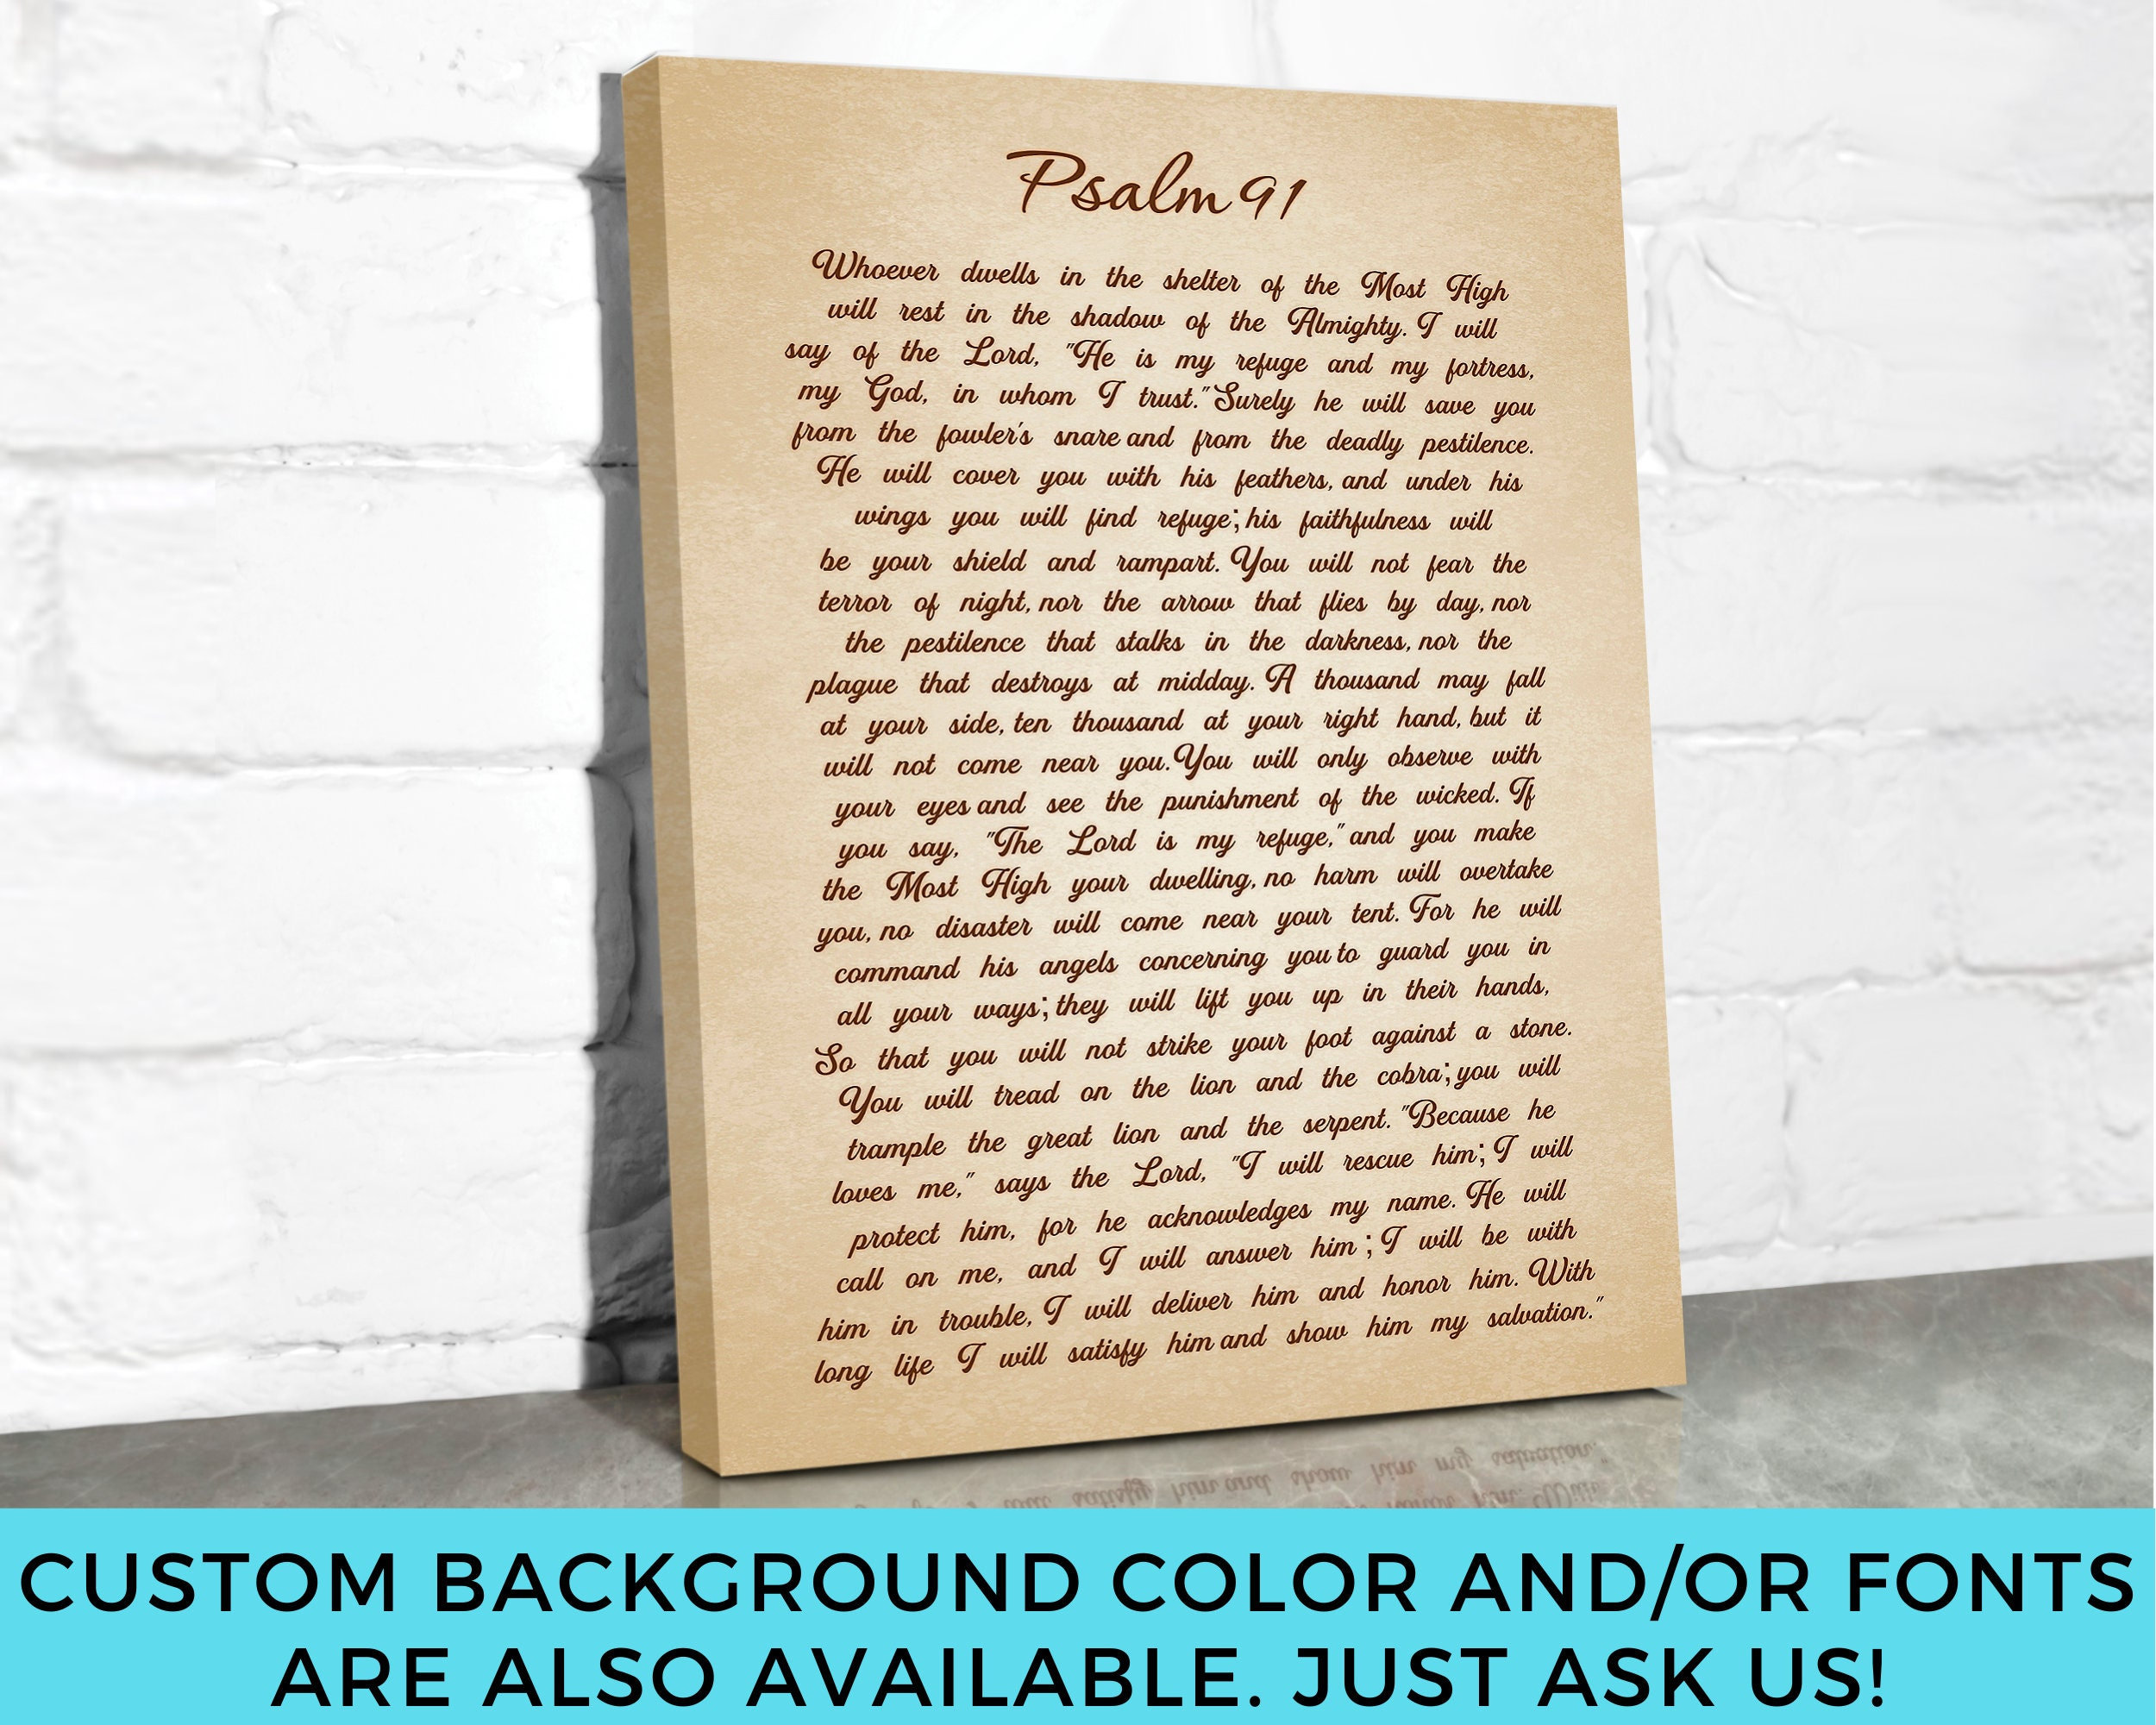 Psalm 91
Whoever dwells in the shelter of the Most High
will rest in the shadow of the Almighty. I will
say of the Lord, "He is my refuge and my fortress,
my God, in whom I trust." Surely he will save you
from the fowler's snare and from the deadly pestilence.
He will cover you with his feathers, and under his
wings you will find refuge; his faithfulness will
be your shield and rampart. You will not fear the
terror of night, nor the arrow that flies by day, nor
the pestilence that stalks in the darkness, nor the
plague that destroys at midday. A thousand may fall
at your side, ten thousand at your right hand, but it
will not come near you. You will only observe with
your eyes and see the punishment of the wicked. If
you say, "The Lord is my refuge," and you make
the Most High your dwelling, no harm will overtake
you, no disaster will come near your tent. For he will
command his angels concerning you to guard you in
all your ways; they will lift you up in their hands,
So that you will not strike your foot against a stone.
You will tread on the lion and the cobra; you will
trample the great lion and the serpent. "Because he
loves me," says the Lord, "I will rescue him; I will
protect him, for he acknowledges my name. He will
call on me, and I will answer him ; I will be with
him in trouble, I will deliver him and honor him. With
long life I will satisfy him and show him my salvation."
CUSTOM BACKGROUND COLOR AND/OR FONTS
ARE ALSO AVAILABLE. JUST ASK US!